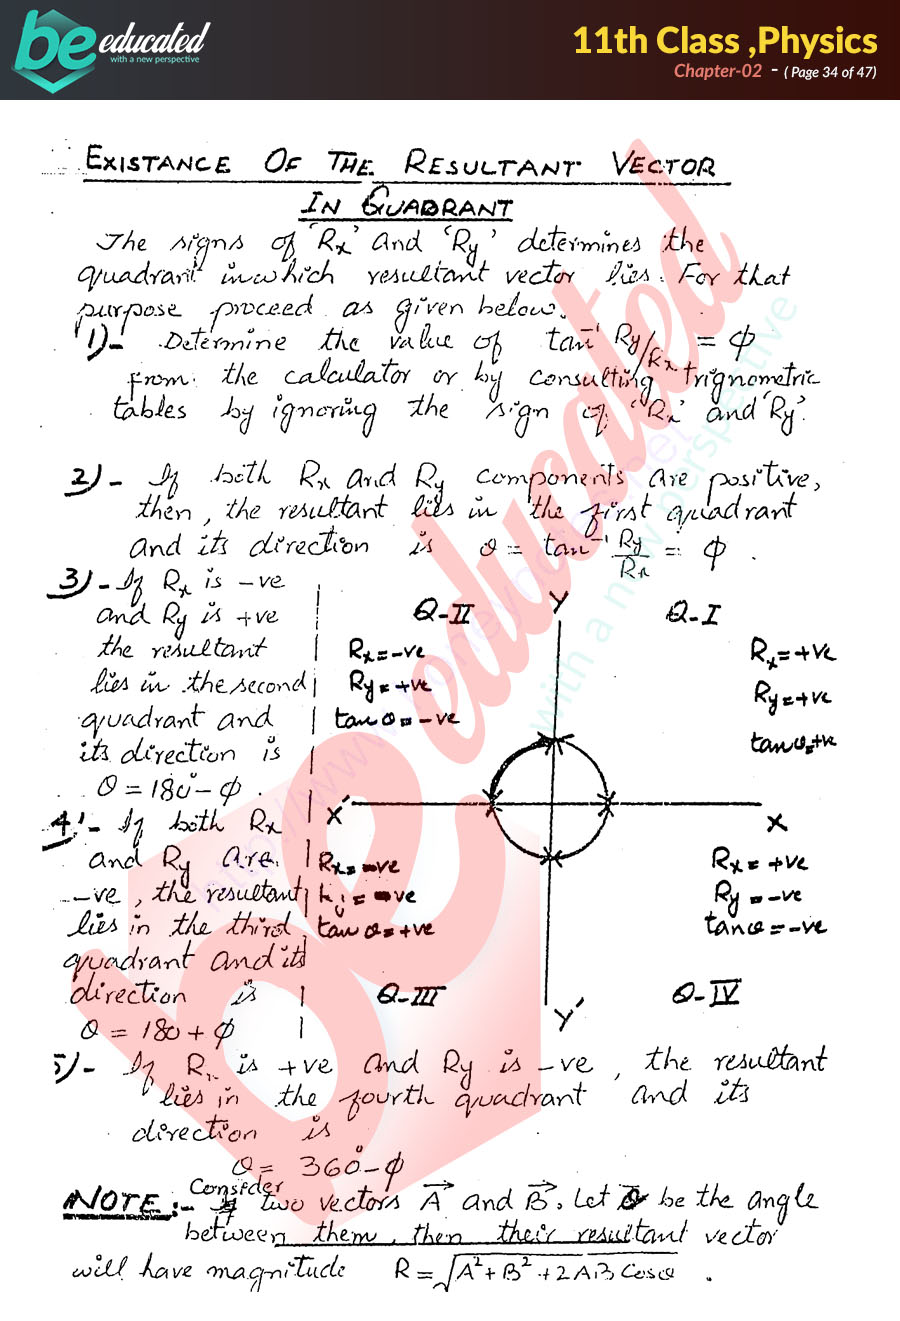 be educated
with a new perspective
11th Class ,Physics
Chapter-02 - ( Page 34 of 47)
EXISTANCE OF THE RESULTANT VECTOR
IN QUADRANT
The signs of 'Rx' and 'Ry' determines the
quadrant in which resultant vector lies. For that
purpose proceed as given below.
1)- Determine the value of tan⁻¹ Ry/Rx = φ
from the calculator or by consulting trignometric
tables by ignoring the sign of 'Rx' and 'Ry'.
2)- If both Rx and Ry components are positive,
then, the resultant lies in the first quadrant
and its direction is θ = tan⁻¹ Ry/Rx = φ .
3)- If Rx is -ve
and Ry is +ve
the resultant
lies in the second
quadrant and
its direction is
θ = 180° - φ .
4)- If both Rx
and Ry are
-ve, the resultant
lies in the third
quadrant and its
direction is
θ = 180 + φ
Q-II
Rx = -ve
Ry = +ve
tan θ = -ve
Y
Q-I
Rx = +ve
Ry = +ve
tan θ = +ve
X'
X
Rx = -ve
= -ve
tan θ = +ve
Q-III
Rx = +ve
Ry = -ve
tan θ = -ve
Q-IV
Y'
5)- If R is +ve and Ry is -ve , the resultant
lies in the fourth quadrant and its
direction is
θ = 360° - φ
NOTE:- Consider two vectors A⃗ and B⃗. Let θ be the angle
between them, then their resultant vector
will have magnitude R = √A² + B² + 2AB Cosθ .
be educated
with a new perspective